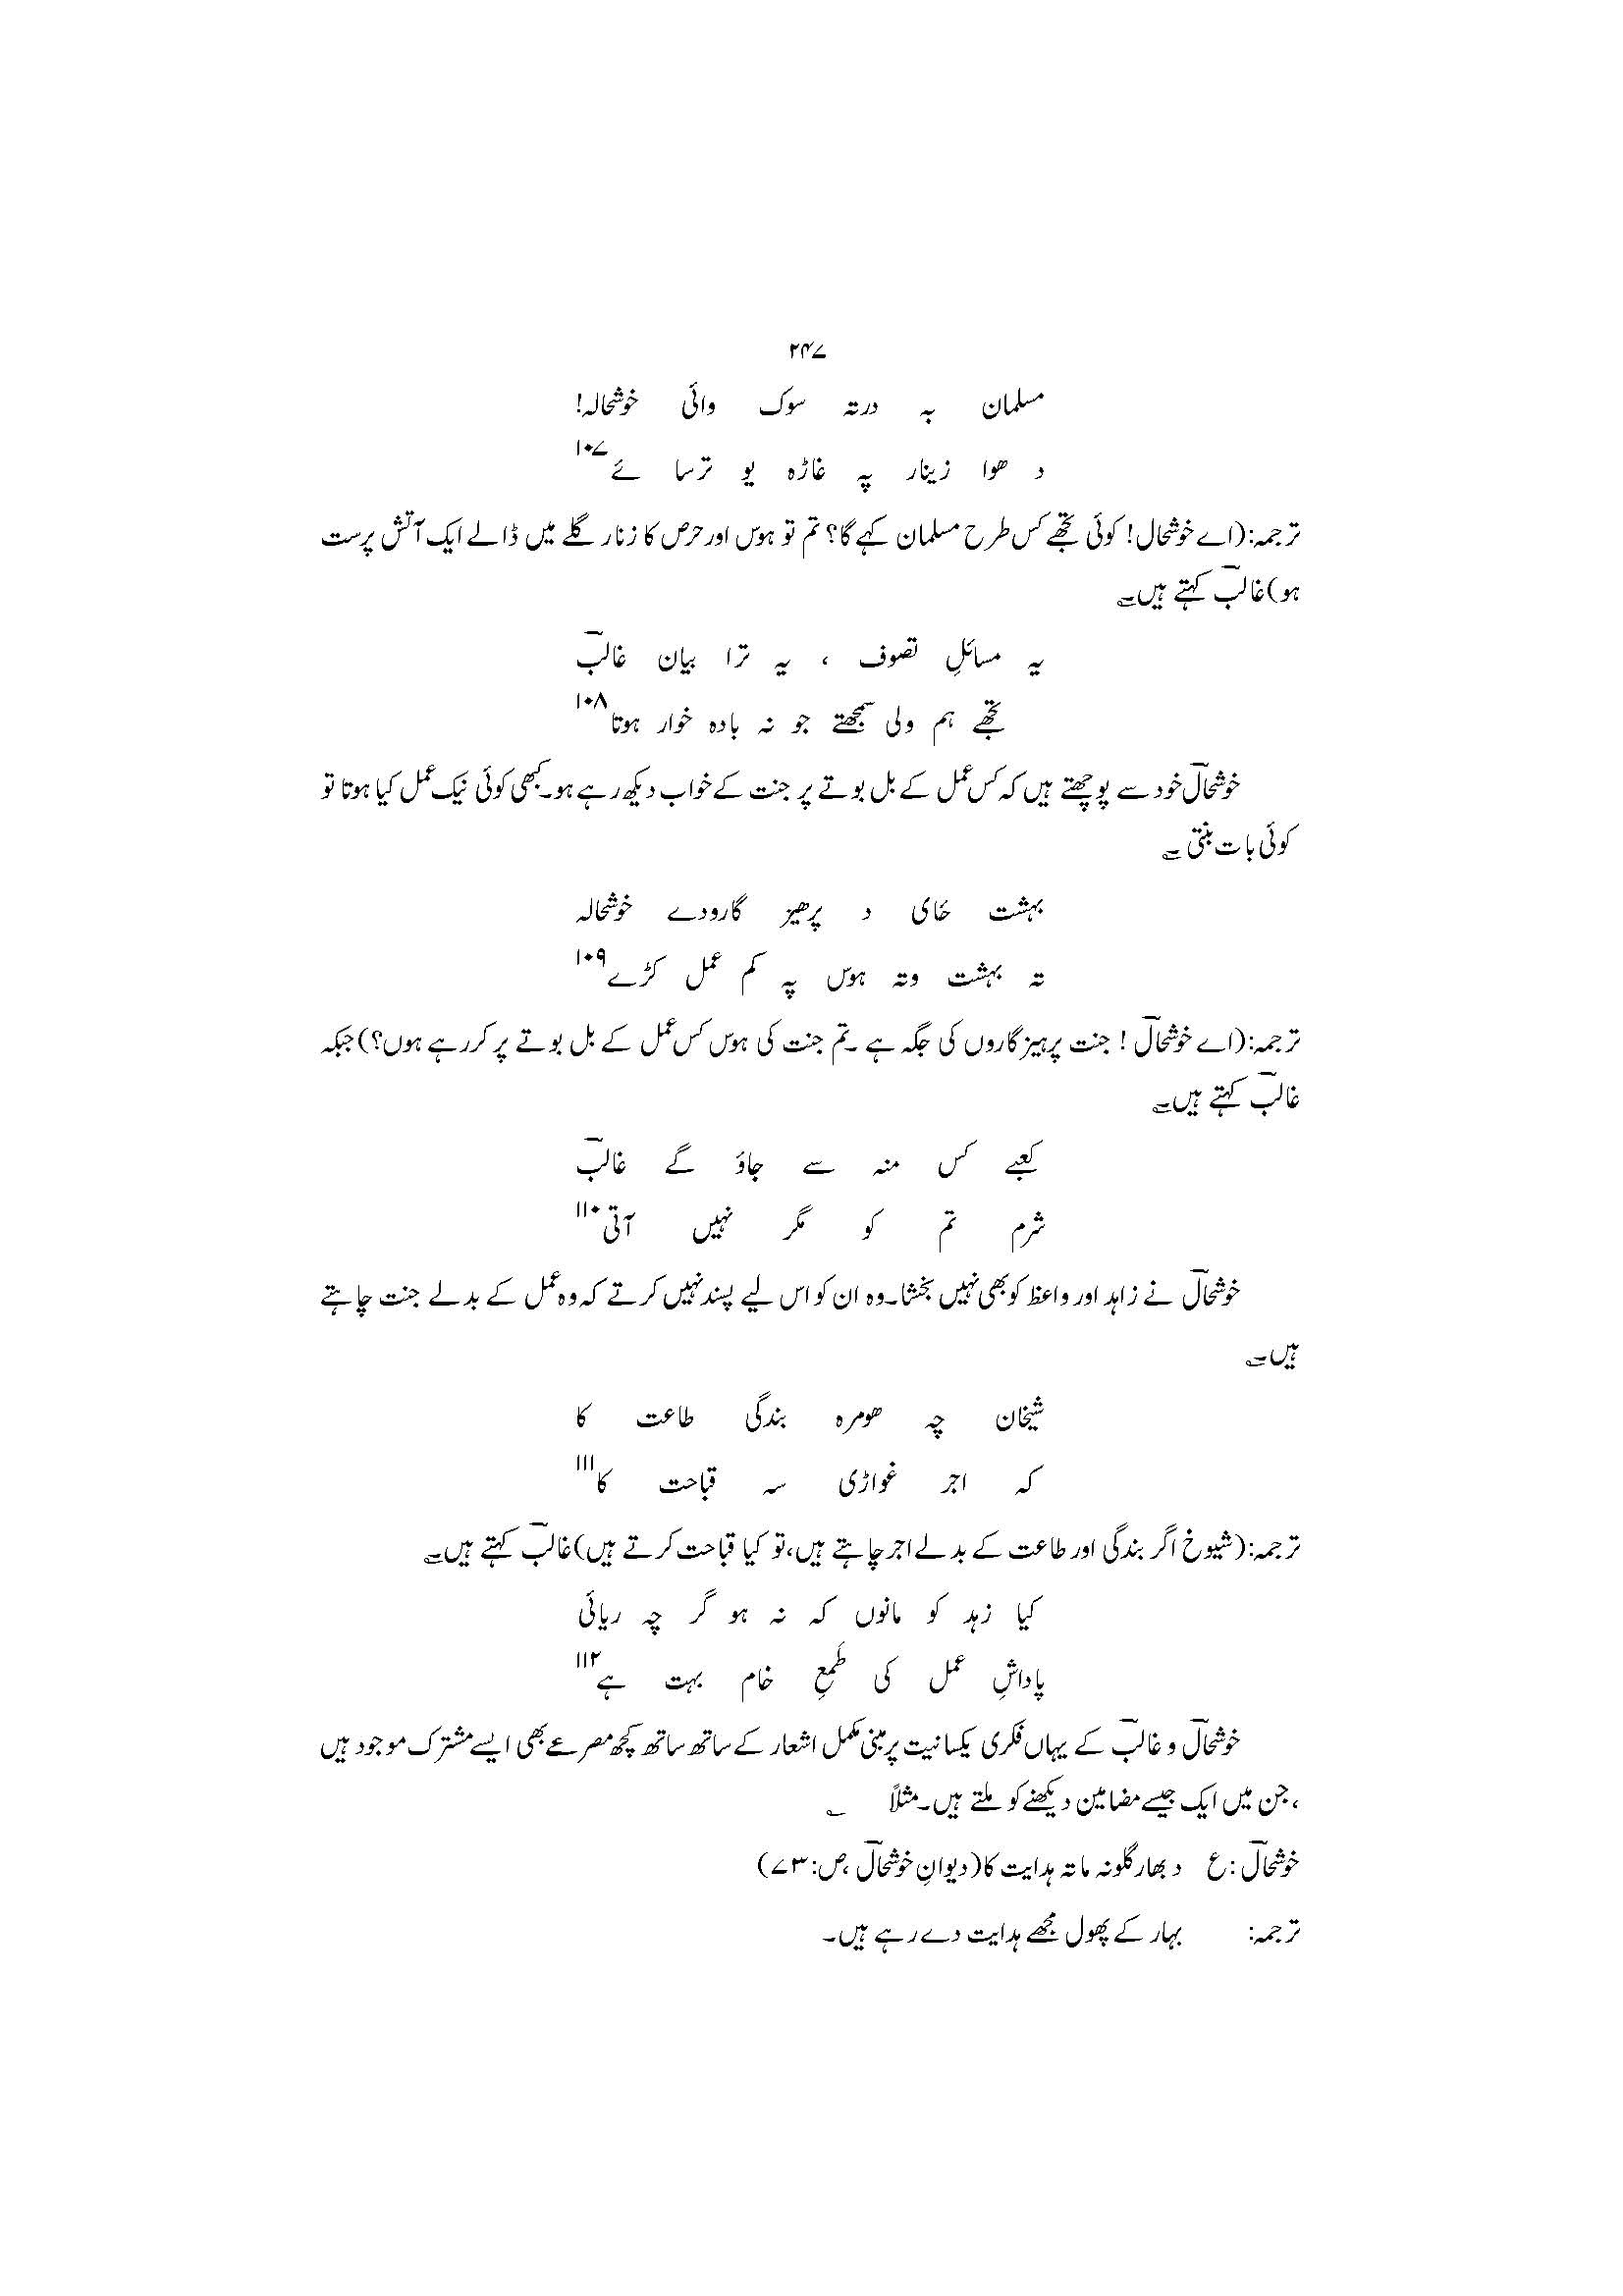 ۲۴۷
مسلمان بہ درتہ سوک وائی خوشحالہ!
د ھوا زینار پہ غاڑہ یو ترسا ئے۱۰۷
ترجمہ:(اے خوشحال! کوئی تجھے کس طرح مسلمان کہے گا؟ تم تو ہوس اور حرص کا زنار گلے میں ڈالے ایک آتش پرست
ہو)غالبؔ کہتے ہیں؎
یہ مسائلِ تصوف ، یہ ترا بیان غالبؔ
تجھے ہم ولی سمجھتے جو نہ بادہ خوار ہوتا۱۰۸
خوشحالؔ خود سے پوچھتے ہیں کہ کس عمل کے بل بوتے پر جنت کے خواب دیکھ رہے ہو۔کبھی کوئی نیک عمل کیا ہوتا تو
کوئی بات بنتی ؎
بہشت ځای د پرھیز گارودے خوشحالہ
تہ بہشت وتہ ہوس پہ کم عمل کڑے۱۰۹
ترجمہ:(اے خوشحالؔ ! جنت پرہیز گاروں کی جگہ ہے ۔تم جنت کی ہوس کس عمل کے بل بوتے پر کررہے ہوں؟)جبکہ
غالبؔ کہتے ہیں؎
کعبے کس منہ سے جاؤ گے غالبؔ
شرم تم کو مگر نہیں آتی۱۱۰
خوشحالؔ نے زاہد اور واعظ کو بھی نہیں بخشا۔وہ ان کو اس لیے پسند نہیں کرتے کہ وہ عمل کے بدلے جنت چاہتے
ہیں؎
شیخان چہ ھومرہ بندگی طاعت کا
کہ اجر غواڑی سہ قباحت کا۱۱۱
ترجمہ:(شیوخ اگر بندگی اور طاعت کے بدلے اجر چاہتے ہیں،تو کیا قباحت کرتے ہیں)غالبؔ کہتے ہیں؎
کیا زہد کو مانوں کہ نہ ہو گر چہ ریائی
پاداشِ عمل کی طَمعِ خام بہت ہے۱۱۲
خوشحالؔ و غالبؔ کے یہاں فکری یکسانیت پر مبنی مکمل اشعار کے ساتھ ساتھ کچھ مصرعے بھی ایسے مشترک موجود ہیں
،جن میں ایک جیسے مضامین دیکھنے کو ملتے ہیں۔مثلاً ؎
خوشحالؔ :ع د بھار گلونہ ماتہ ہدایت کا(دیوانِ خوشحالؔ ،ص:۷۳)
ترجمہ: بہار کے پھول مجھے ہدایت دے رہے ہیں۔